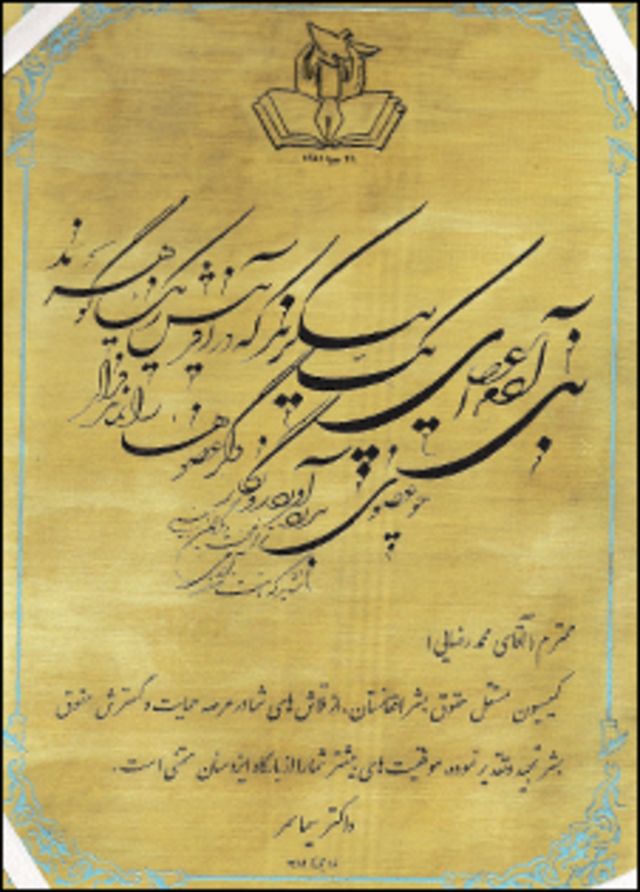 جوزا ۱۳۸۱
بنی آدم اعضای یک پیکرند که در آفرینش ز یک گوهرند
چو عضوی بدرد آورد روزگار دگر عضوها را نماند قرار
تو کز محنت دیگران بی غمی
نشاید که نامت نهند آدمی
محترم (آقای محمد رضایی)
کمیسیون مستقل حقوق بشر افغانستان، از تلاش های شما در عرصه حمایت و گسترش حقوق
بشر تمجید و تقدیر نموده، موفقیت های بیشتر شما را از بارگاه ایزد منان متمنی است.
داکتر سیما سمر